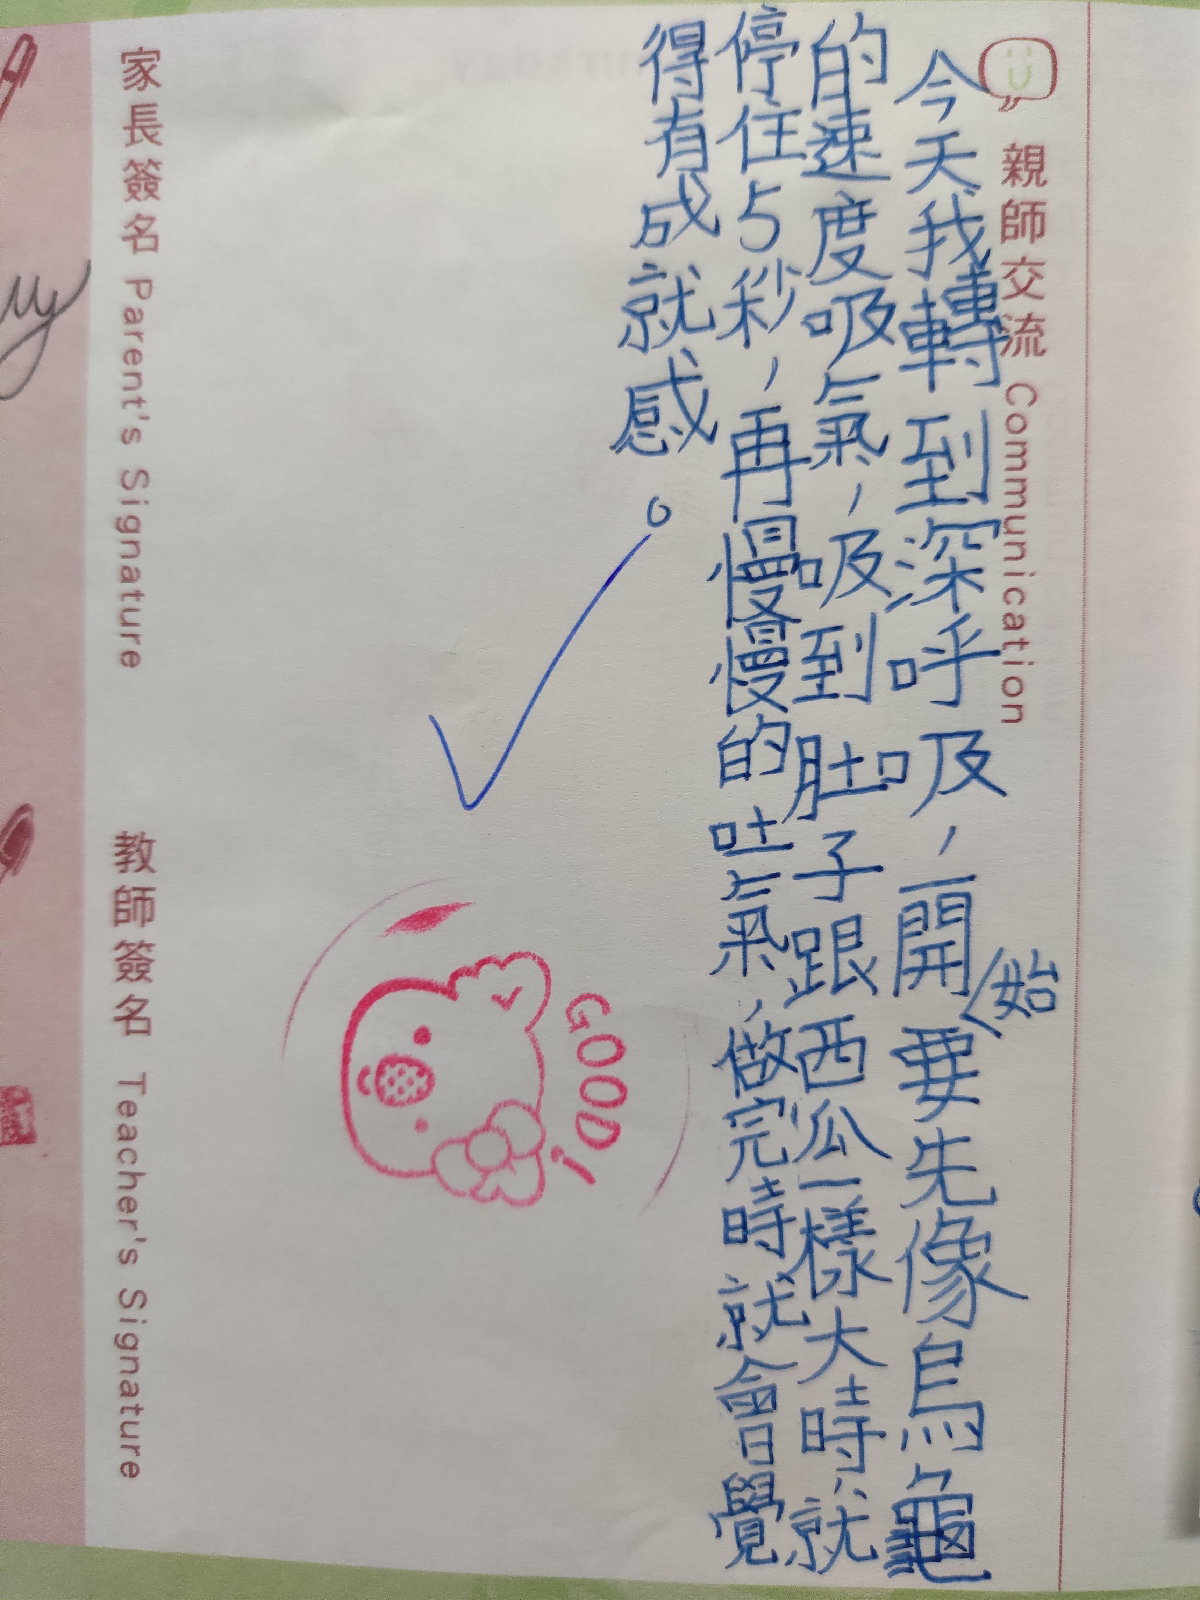 親師交流 Communication
今天我轉到深呼吸，一開始要先像烏龜
的速度吸氣，吸到肚子跟西瓜一樣大時，就
停住5秒，再慢慢的吐氣，做完時就會覺
得有成就感。
GOOD!
家長簽名 Parent's Signature
教師簽名 Teacher's Signature